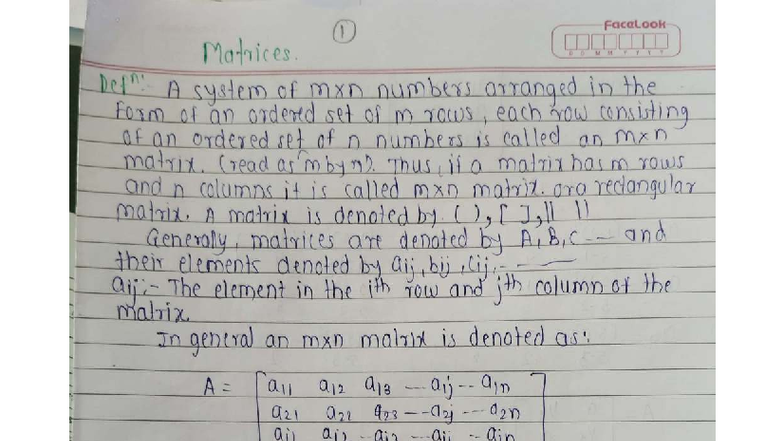 1
FaceLook
D D M M Y Y Y Y
Matrices.
Defn:- A system of m×n numbers arranged in the
Form of an ordered set of m rows, each row consisting
of an ordered set of n numbers is called an m×n
matrix. (read as "m by n"). Thus, if a matrix has m rows
and n columns it is called m×n matrix. or a rectangular
matrix. A matrix is denoted by ( ), [ ], || ||
Generally, matrices are denoted by A, B, C --- and
their elements denoted by aij, bij, cij, - - —
aij:- The element in the ith row and jth column of the
matrix.
In general an m×n matrix is denoted as:
A = [ a11 a12 a13 --- a1j -- a1n ]
a21 a22 a23 -- a2j --- a2n
ai1 ai2 ai3 -- aij -- ain